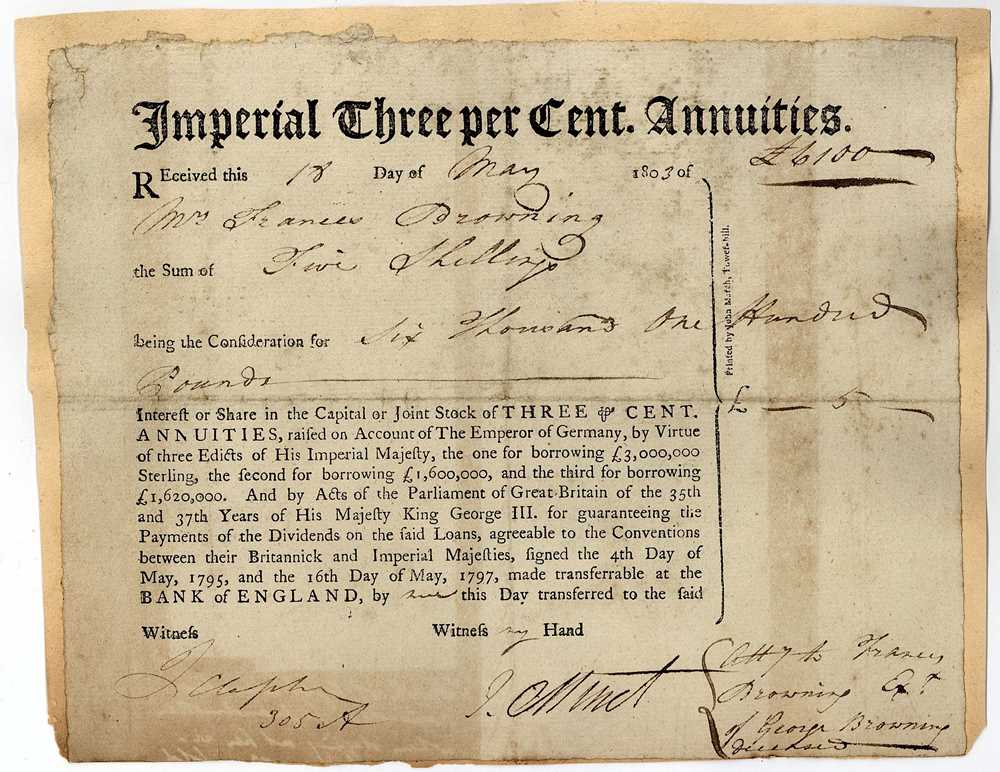 Imperial Three per Cent. Annuities.
£6100
REceived this 18 Day of May 1803 of
Mrs Frances Browning
the Sum of Five Shillings
being the Consideration for Six Thousand One Hundred
Pounds
£ — 5 —
Interest or Share in the Capital or Joint Stock of THREE ⅌ CENT.
ANNUITIES, raised on Account of The Emperor of Germany, by Virtue
of three Edicts of His Imperial Majesty, the one for borrowing £3,000,000
Sterling, the second for borrowing £1,600,000, and the third for borrowing
£1,620,000. And by Acts of the Parliament of Great-Britain of the 35th
and 37th Years of His Majesty King George III. for guaranteeing the
Payments of the Dividends on the said Loans, agreeable to the Conventions
between their Britannick and Imperial Majesties, signed the 4th Day of
May, 1795, and the 16th Day of May, 1797, made transferrable at the
BANK of ENGLAND, by this Day transferred to the said
Witness Witness my Hand
305 A
J. Minet
Atty to Frances
Browning Ext
of George Browning
deceased
Printed by John March, Tower-hill.